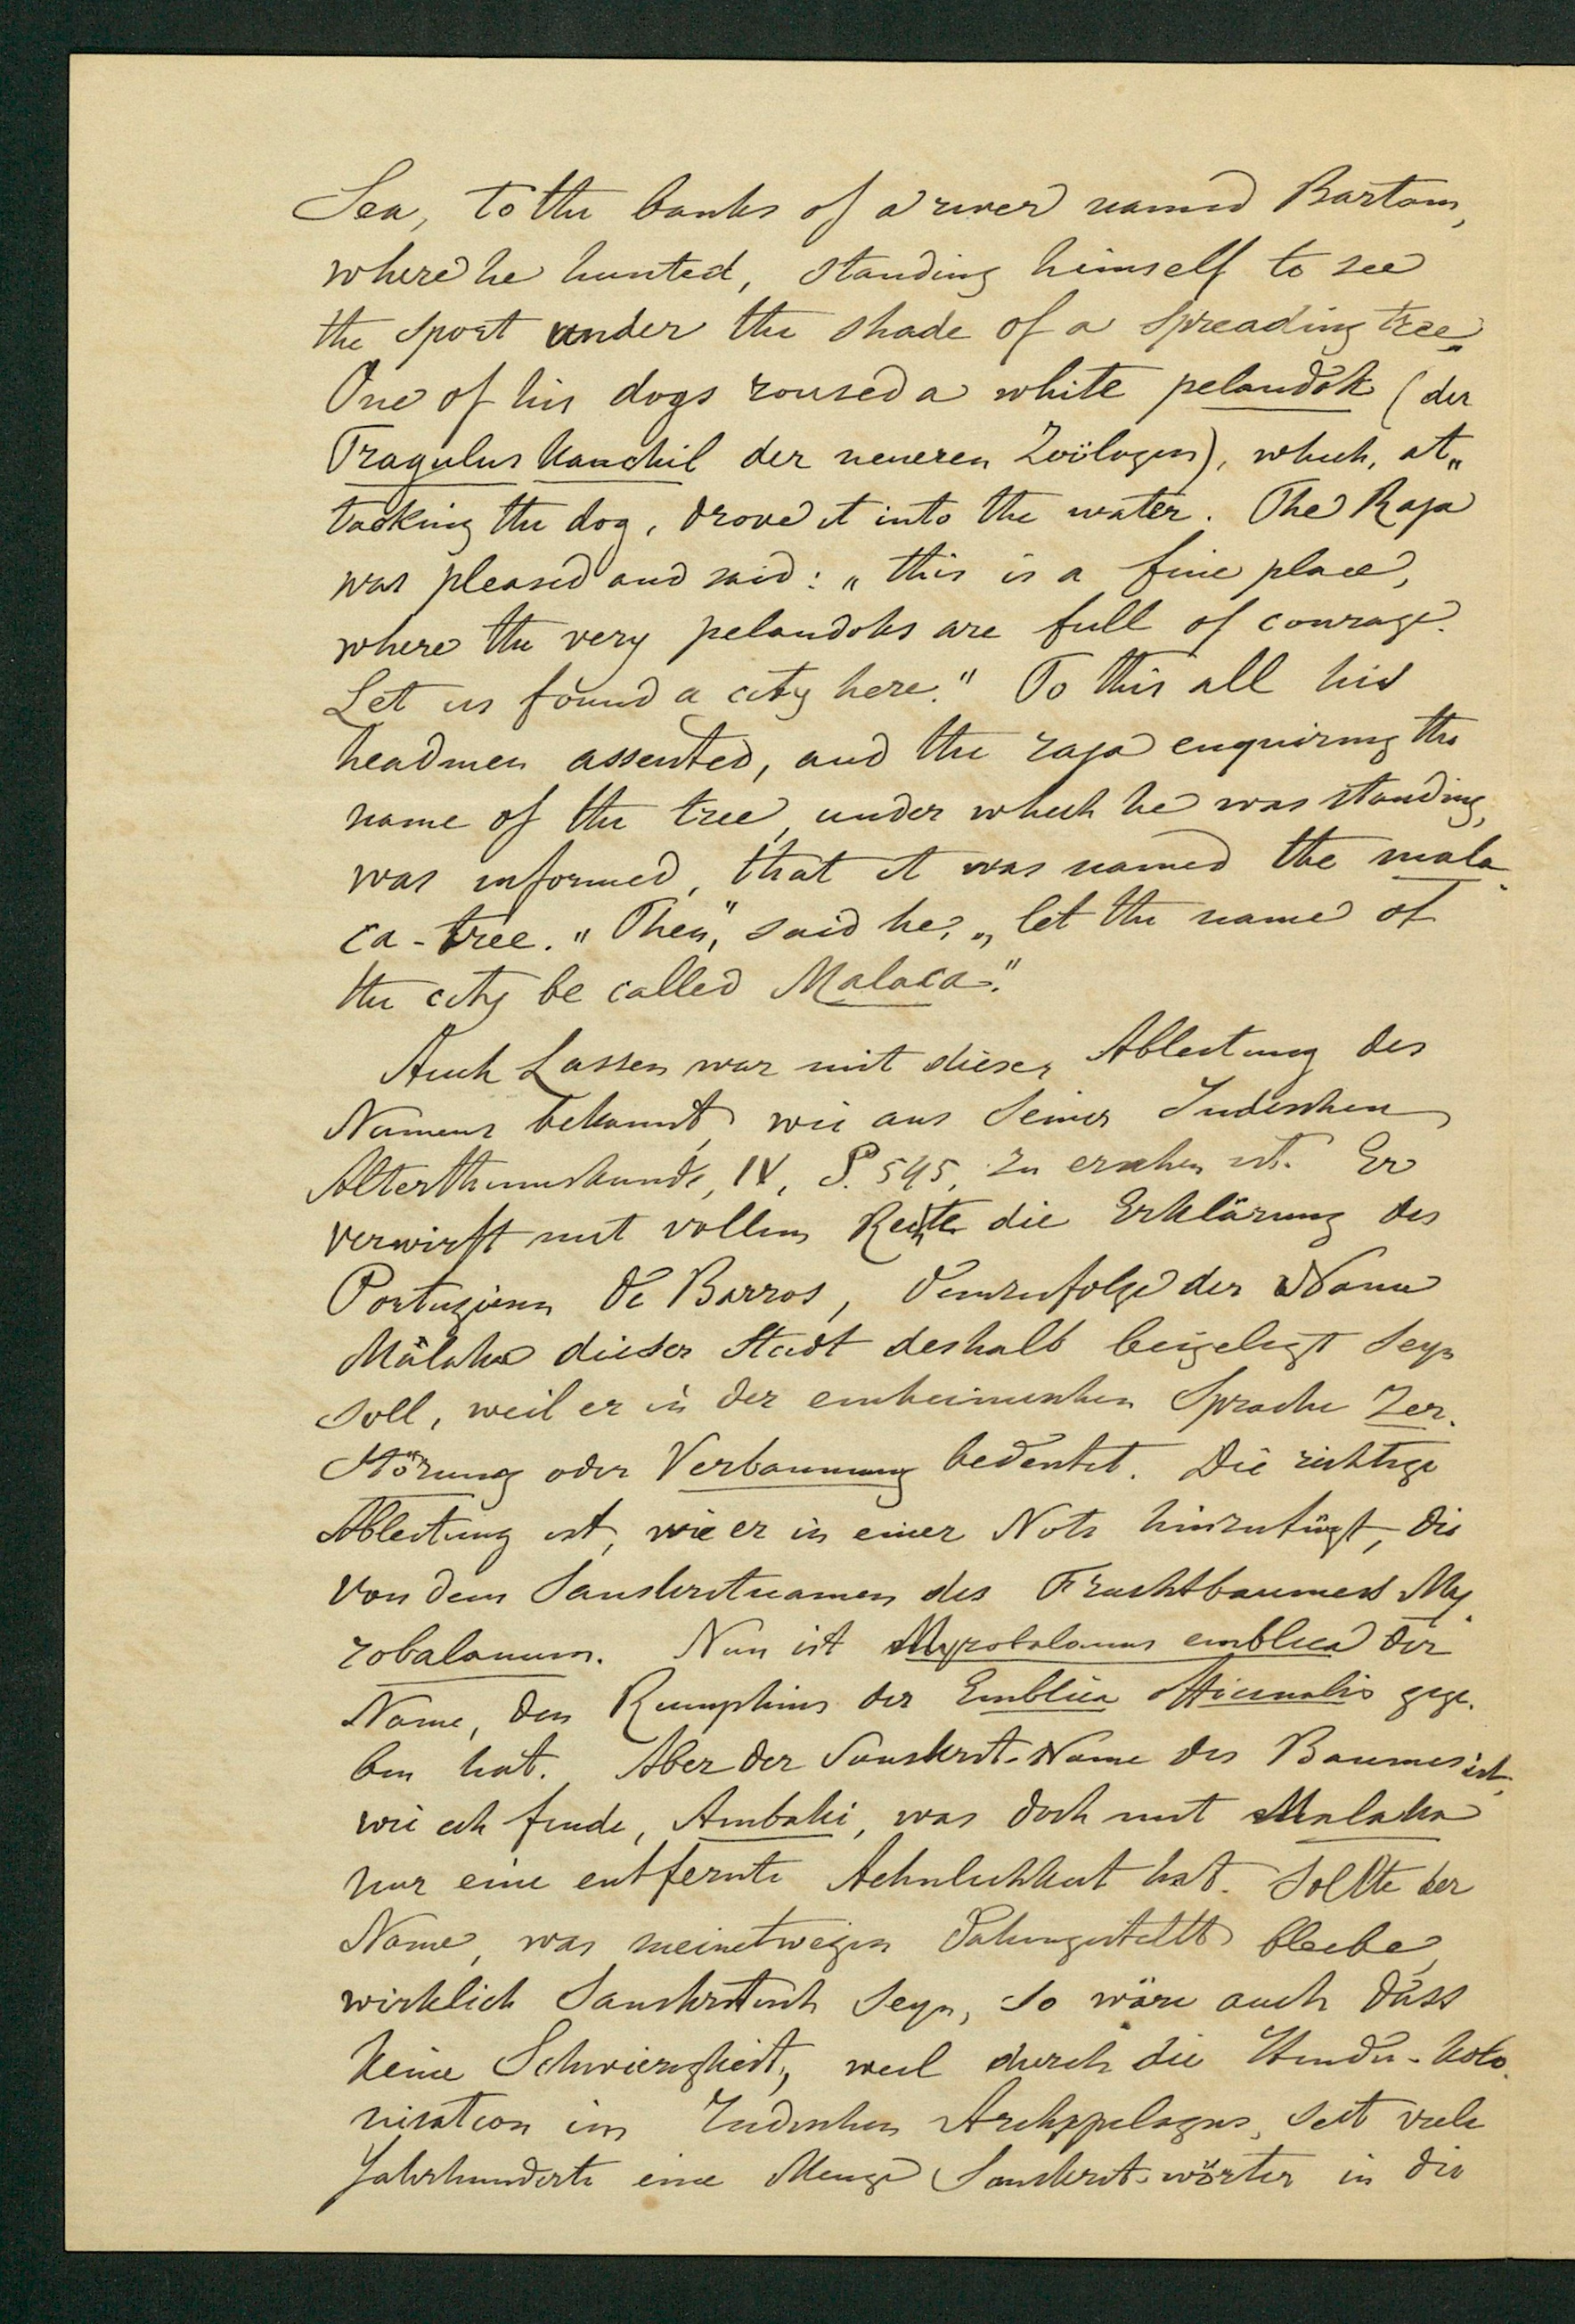 Sea, to the banks of a river named Bartam,
where he hunted, standing himself to see
the sport under the shade of a spreading tree.
One of his dogs roused a white pelandok (der
Tragulus Kanchil der neueren Zoölogen), which, at„
tacking the dog, drove it into the water. The Raja
was pleased and said: „this is a fine place,
where the very pelandoks are full of courage.
Let us found a city here." To this all his
headmen assented, and the raja enquiring the
name of the tree, under which he was standing,
was informed, that it was named the mala-
ca-tree. „Then", said he, „let the name of
the city be called Malaca."
Auch Lassen war mit dieser Ableitung des
Namens bekannt, wie aus seiner Indischen
Alterthumskunde, IV, S. 545, zu ersehen ist. Er
verwirft mit vollem Rechte die Erklärung des
Portugiesen De Barros, demzufolge der Name
Mâlaka dieser Stadt deshalb beigelegt seyn
soll, weil er in der einheimischen Sprache Zer-
störung oder Verbannung bedeutet. Die richtige
Ableitung ist, wie er in einer Note hinzufügt, die
von dem Sanskritnamen des Fruchtbaumes My-
robalanum. Nun ist Myrobalanus emblica der
Name, den Rumphius der Emblica officinalis gege-
ben hat. Aber der Sanskrit-Name des Baumes ist,
wie ich finde, Ambaki, was doch mit Malaka
nur eine entfernte Aehnlichkeit hat. Sollte der
Name, was meinetwegen dahingestellt bleibe,
wirklich Sanskritisch seyn, so wäre auch dass
keine Schwierigkeit, weil durch die Hindu-Kolo-
nisation im Indischen Archippelagus, seit viele
Jahrhunderte eine Menge Sanskrit-wörter in die